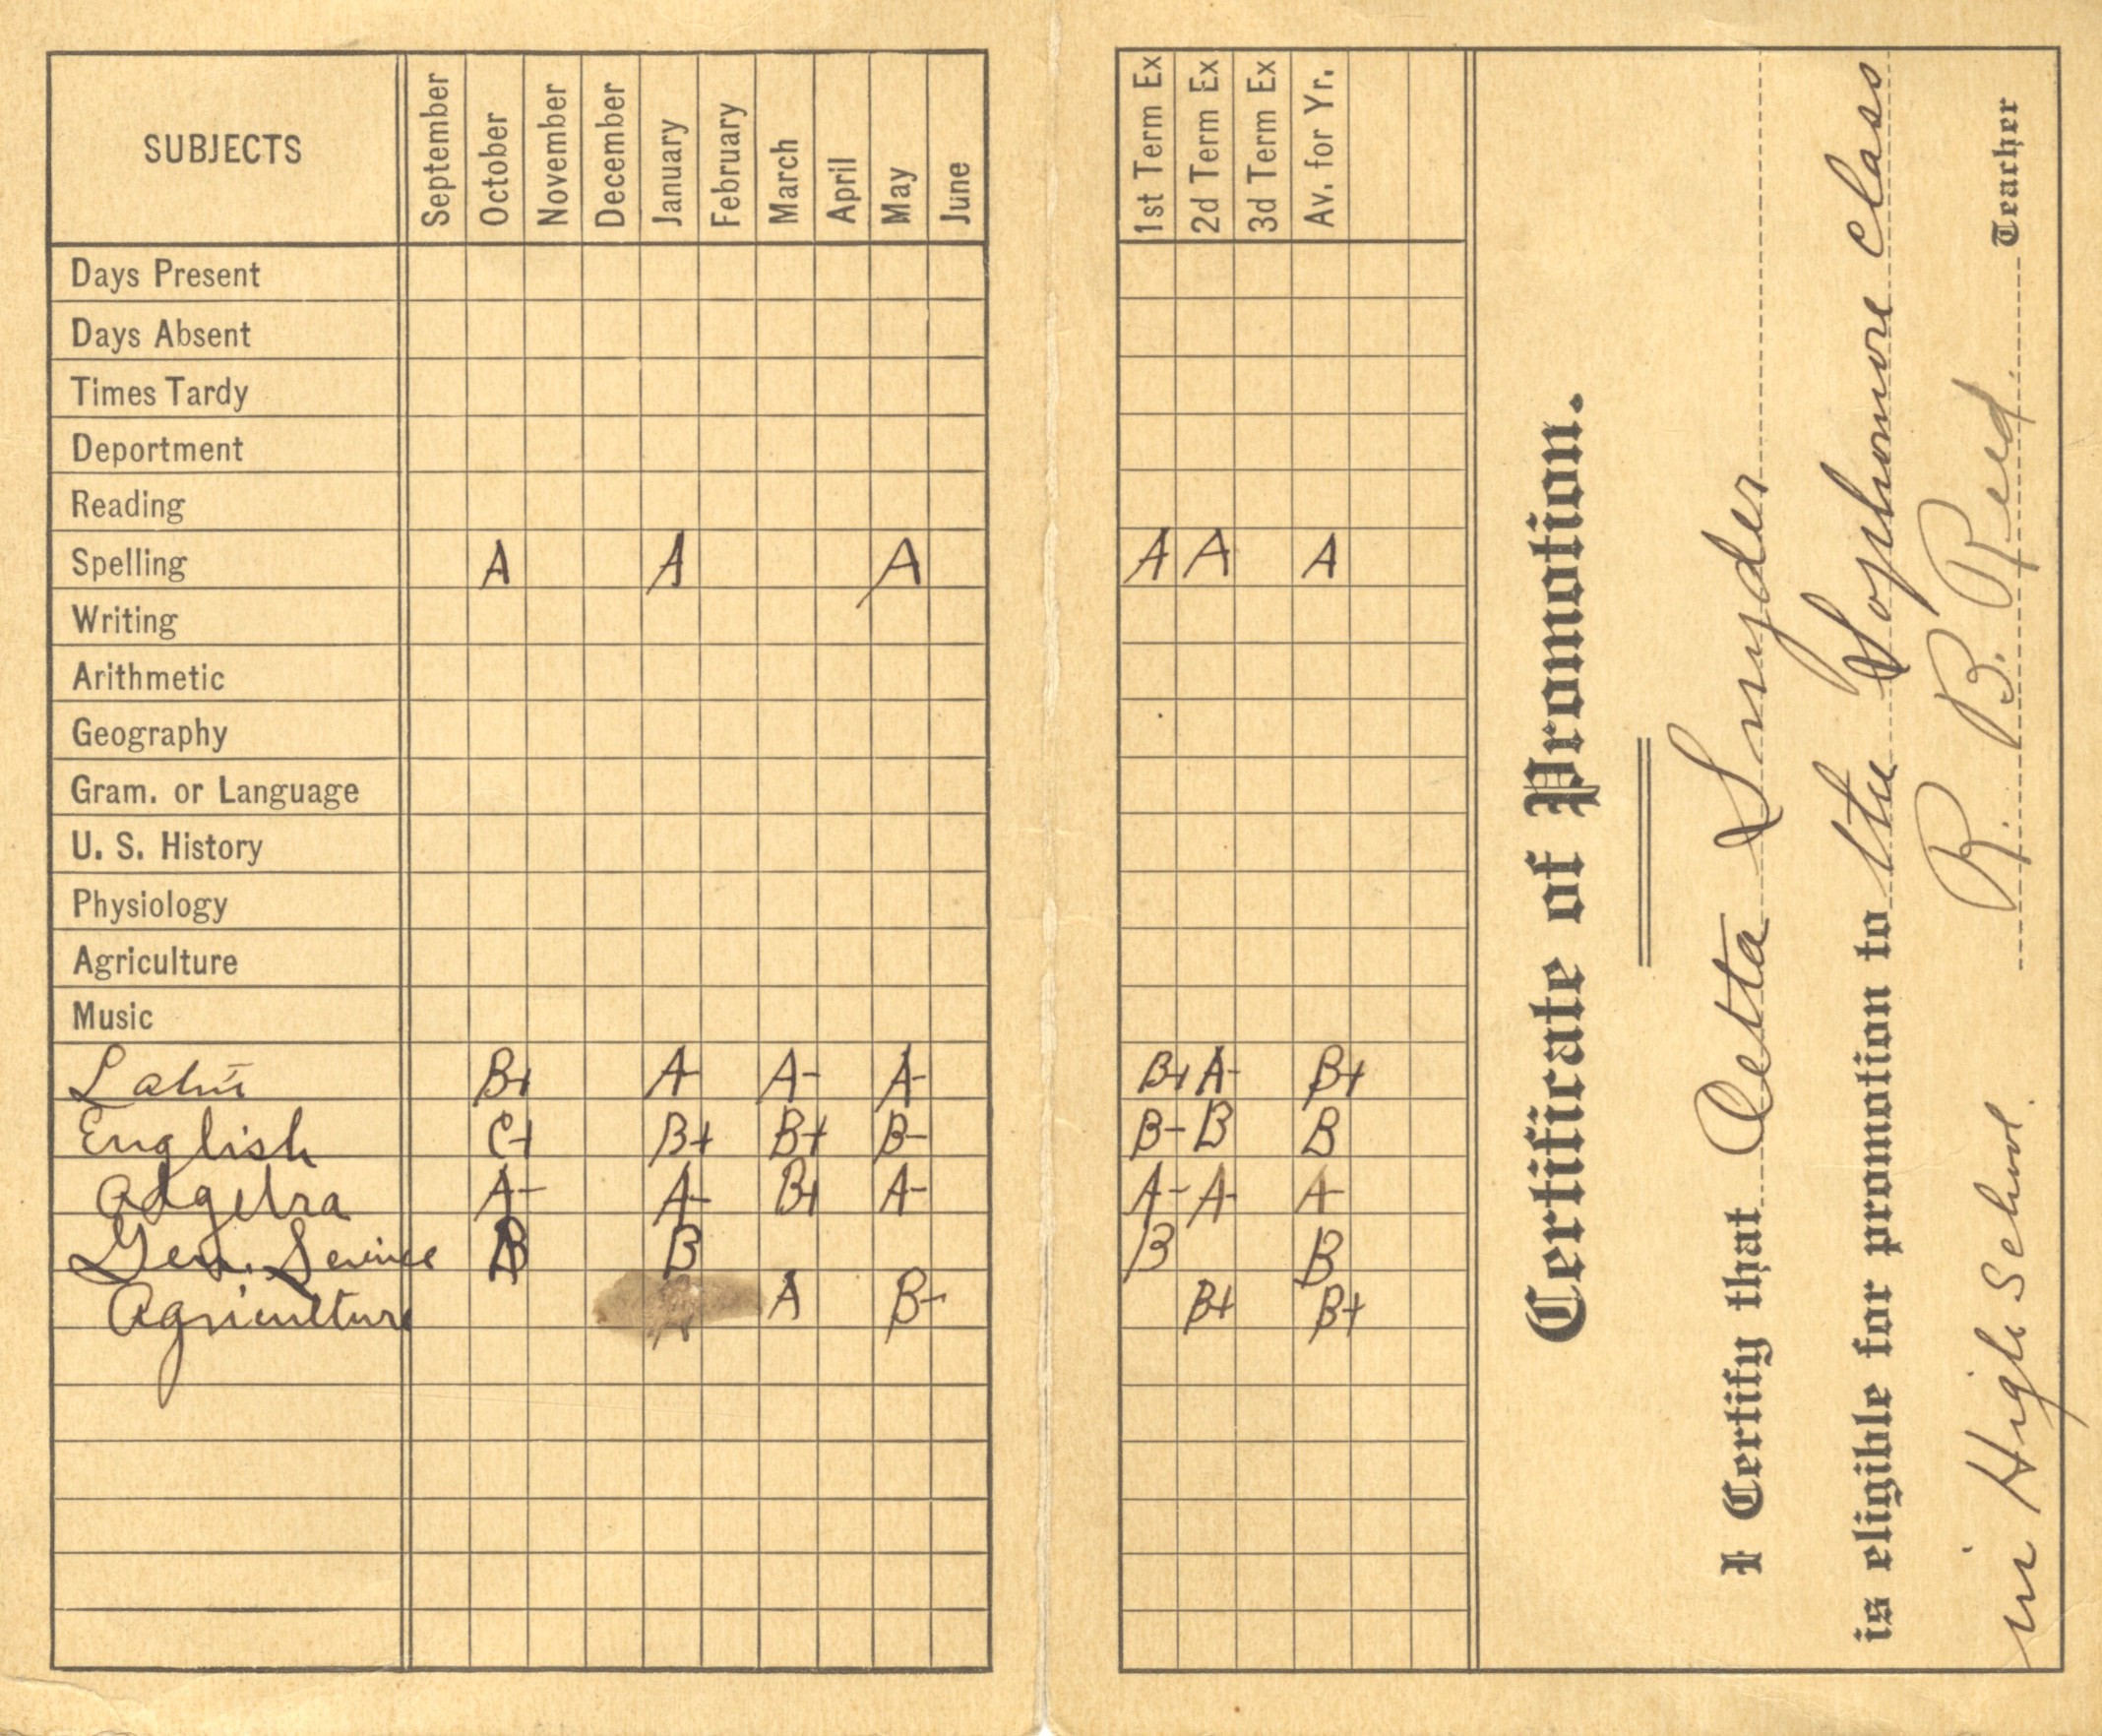 SUBJECTS September October November December January February March April May June 1st Term Ex 2d Term Ex 3d Term Ex Av. for Yr.
Days Present
Days Absent
Times Tardy
Deportment
Reading
Spelling A A A A A A
Writing
Arithmetic
Geography
Gram. or Language
U. S. History
Physiology
Agriculture
Music
Latin B+ A- A- A- B+ A- B+
English C+ B+ B+ B- B- B B
Algebra A- A- B+ A- A- A- A-
Gen. Science B B B B
Agriculture A B- B+ B+
Certificate of Promotion.
I Certify that Cetta Snyder
is eligible for promotion to the Sophomore class
in High School.
R. B. Reed. Teacher